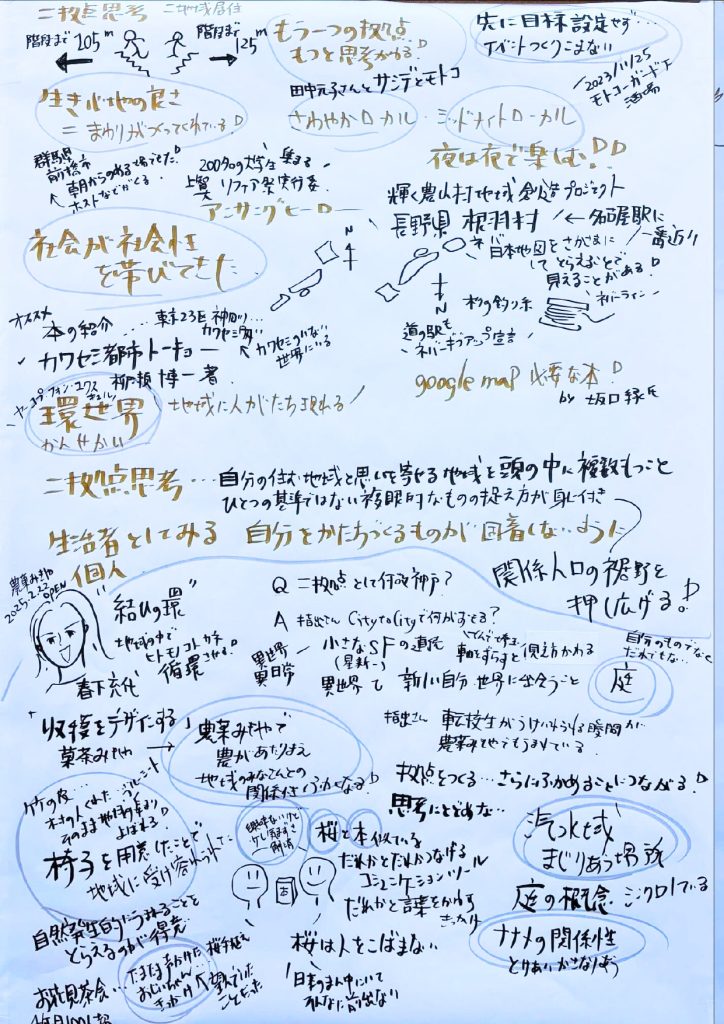 二拠点思考 二地域居住
階段まで 105m
階段まで 125m
もう一つの拠点
もっと思考かわる!
先に目標設定せず…
イベントつくりこまない
2023/11/25
モトコーガード下
酒場
田中元子さんとサンデとモトコ
生き心地の良さ
=まわりがつくってくれている!
さわやかローカル・ミッドナイトローカル
夜は夜で楽しむ!!
群馬県
前橋市
朝からのあるまちでした!
200名の大学生 集まる
アンサングヒーロー
輝く農山村地域創造プロジェクト
長野県 根羽村 ← 名古屋駅に
一番近い
社会が社会性
を帯びてきた
N
日本地図をさかさまに
して とらえなおすことで
見えることがある!
N
杉の釣り糸
ネバーライン
道の駅も
ネバーギブアップ宣言
オススメ
本の紹介……東京23区 神田川…
カワセミ都市トーキョー
カワセミのいない
世界にいる
柳瀬博一著
google map 必要な本!
by 坂口緑氏
環世界
かんせかい
地域に人がたち現れる
二拠点思考…自分の住む地域と思いを寄せる地域を頭の中に複数もつこと
ひとつの基準ではない複眼的なものの捉え方が身に付き
生活者としてみる 自分をかたちづくるものが固着しないように
個人
関係人口の裾野を
押し広げる!
2025.2.22
OPEN
"結いの環"
地域の中で
ヒトモノコトカネ
循環させる!
春下充代
Q 二拠点として何故神戸?
A 指出さん City to Cityで何がおきる?
異世界
異日常
小さなSFの連続
(星新一)
軸をずらすと 見え方かわる
異世界で 新しい自分、世界に出会うこと
自分のものでなく
だれでもない…
庭
「収穫をデザインする」
菓茶みやや
農菓みややで
農があたりまえ
地域のみなさんとの
関係性ふかくなる!
指出さん 転校生がうけいれられる瞬間が
農菓みややでもうまれている
拠点をつくる…さらにふかめることにつながる!
思考にとどめな…
竹の皮…
そのまま地域の集まり
よばれる!
椅子を用意したことで
地域に受け容れられた
桜と本 似ている
だれかとだれかつなげる
コミュニケーションツール
だれかと言葉をかわす
きっかけ
汽水域
まじりあう場所
庭の概念 シンクロしている
ナナメの関係性
とりあいかさなりあう
自然発生的にうまれることを
とらえるのが得意
桜は人をこばまない
日本のまん中にいて
そんなに前出ない
お花見茶会…
たまたま声かけた
おじいちゃん…
きっかけ
桜手植え
望んでいた
ことだった